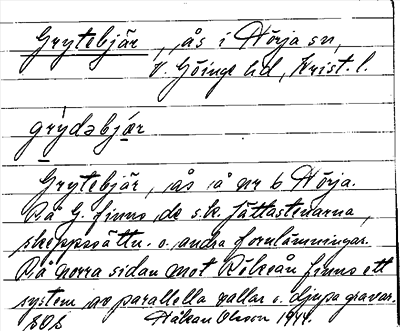 Grytebjär, ås i Hörja sn,
V. Göinge hd, Krist. l.
grýdəbjær
Grytebjär, ås å nr 6 Hörja.
På G. finns de s.k. Jättastenarna,
skeppssättn. o. andra fornlämningar.
På norra sidan mot Rökeån finns ett
system av parallella vallar o. djupa gravar.
Håkan Olsson 1944.